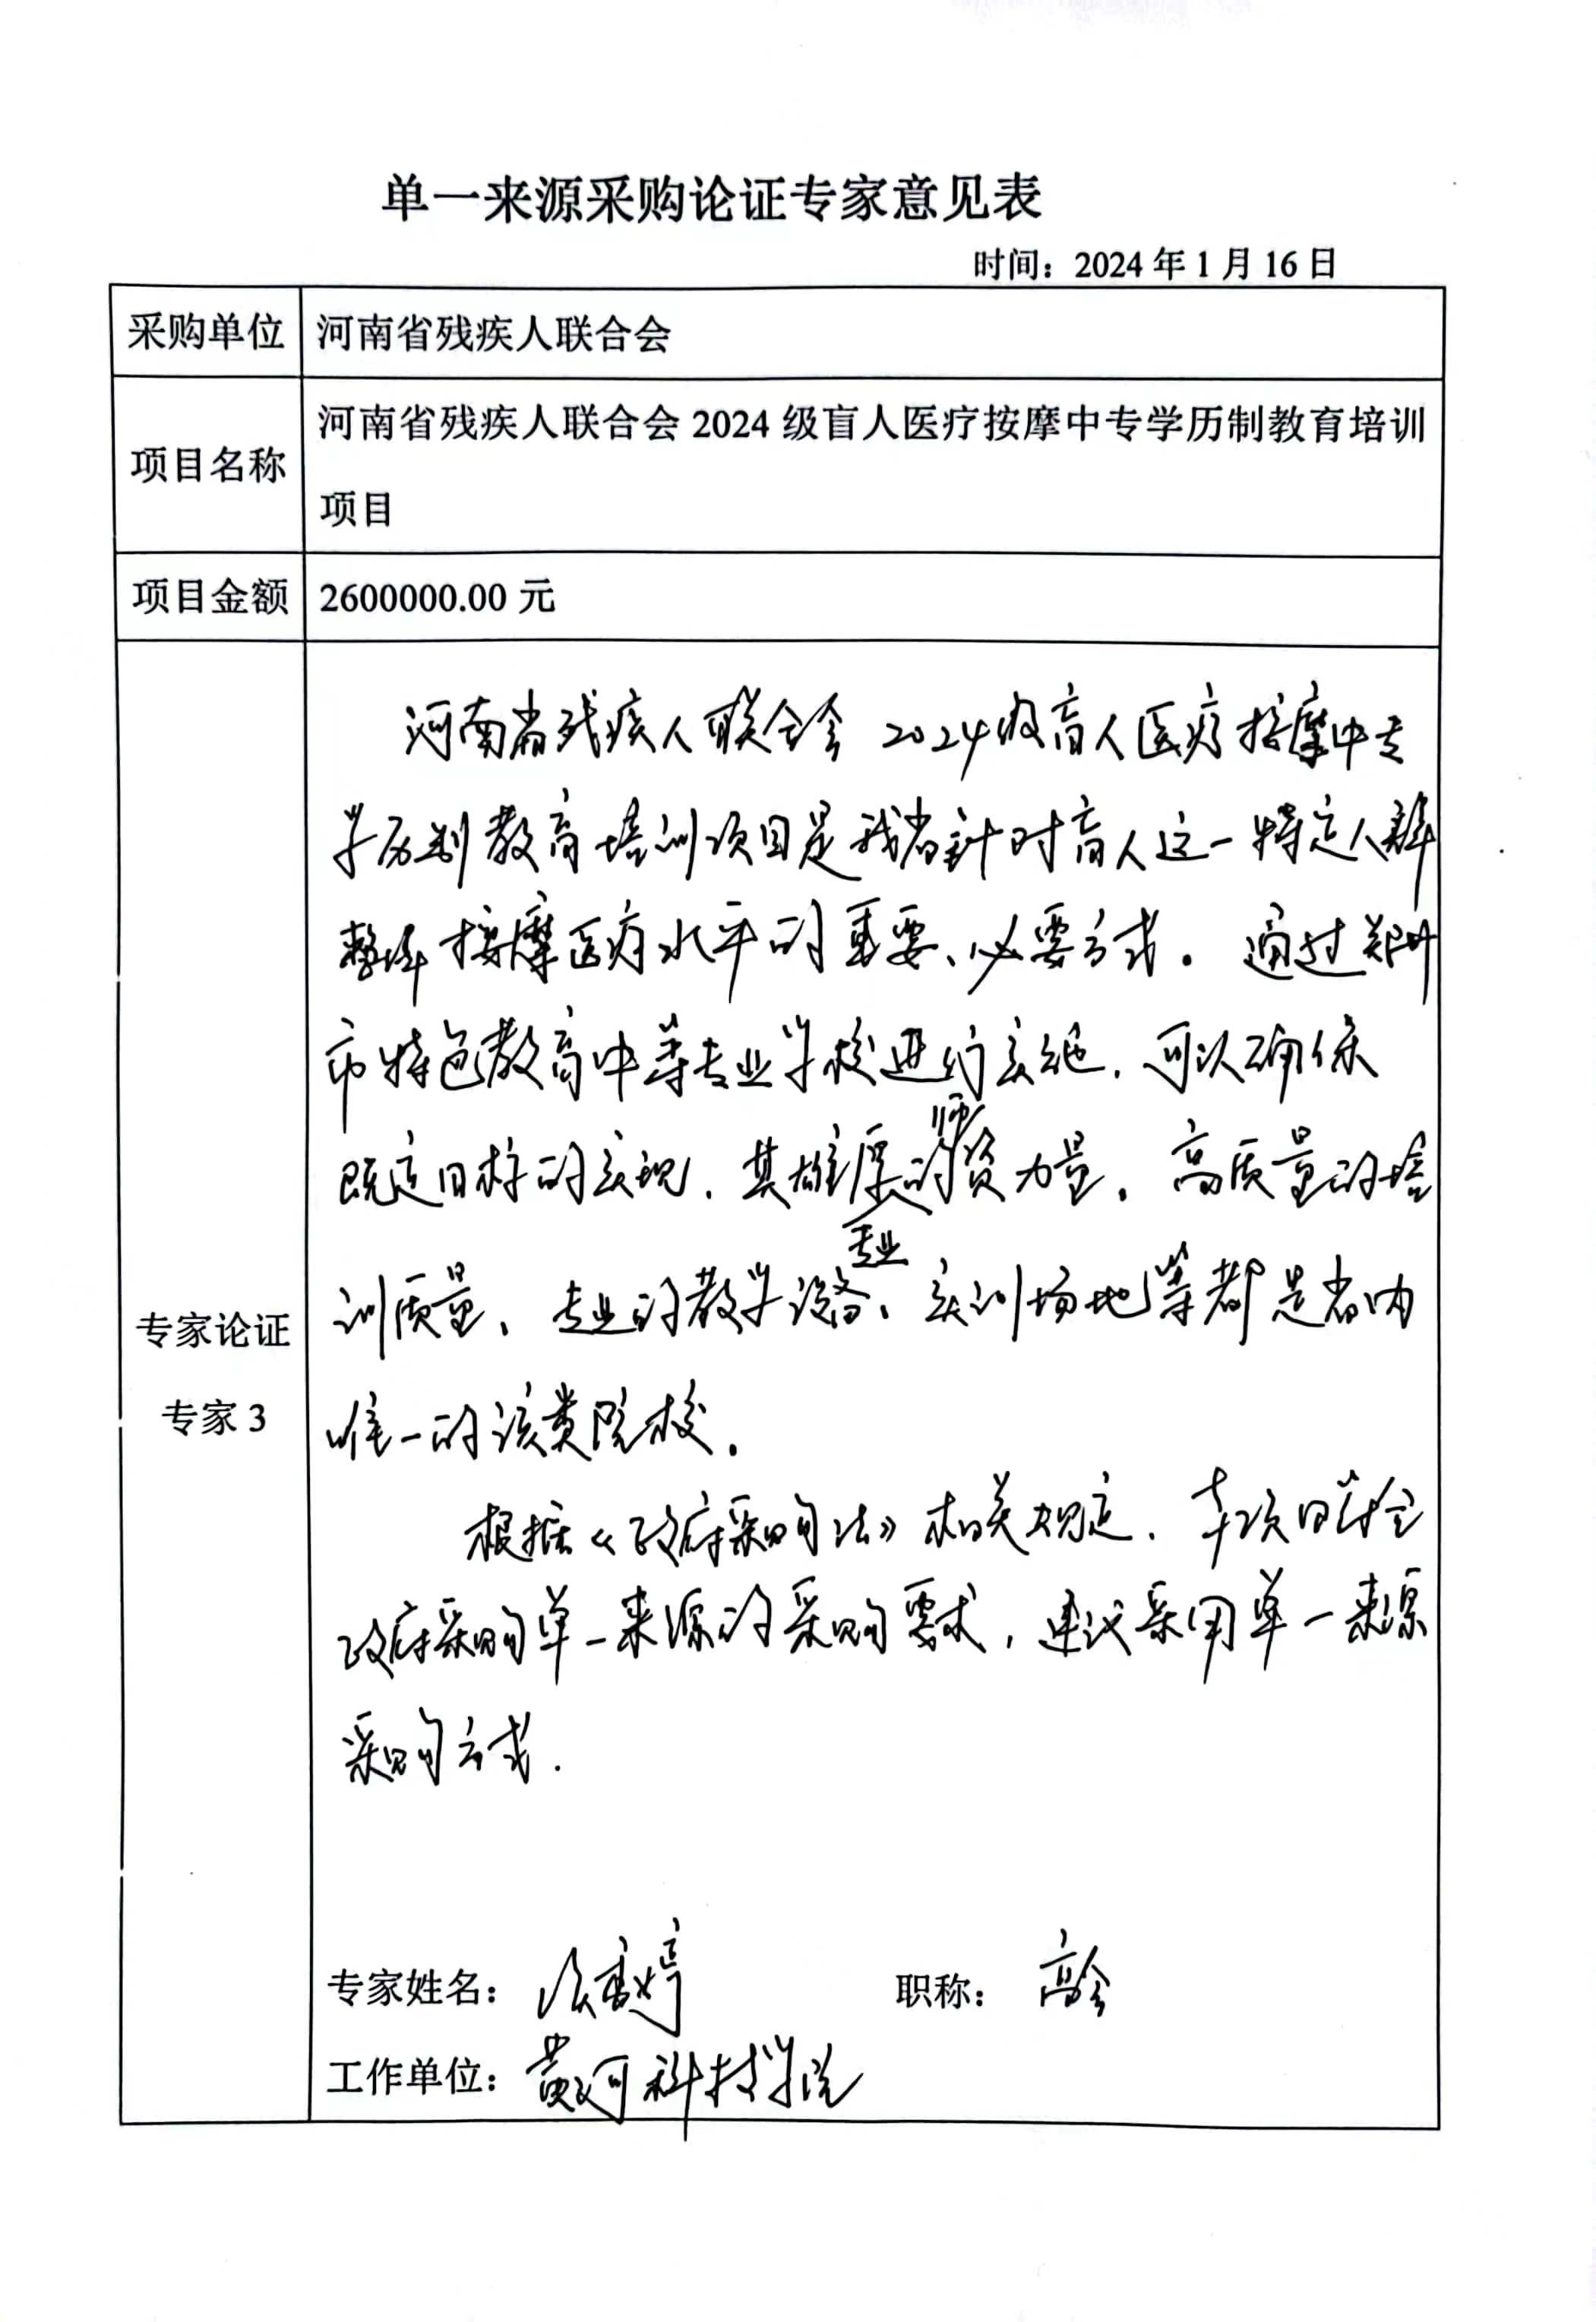 单一来源采购论证专家意见表
时间：2024年1月16日
采购单位
河南省残疾人联合会
项目名称
河南省残疾人联合会2024级盲人医疗按摩中专学历制教育培训
项目
项目金额
2600000.00元
专家论证
专家3
河南省残疾人联合会2024级盲人医疗按摩中专
学历制教育培训项目是我省针对盲人这一特定人群
按摩医疗水平的重要、必要方式。通过郑州
市特色教育中等专业学校进行实施，可以确保
既定目标的实现，其雄厚的师资力量，高质量的培
训质量，专业的教学设备，专业实训场地等都是省内
唯一的该类院校。
根据《政府采购法》相关规定，本项目符合
政府采购单一来源的采购要求，建议采用单一来源
采购方式.
专家姓名：
职称：高会
工作单位：黄河科技学院